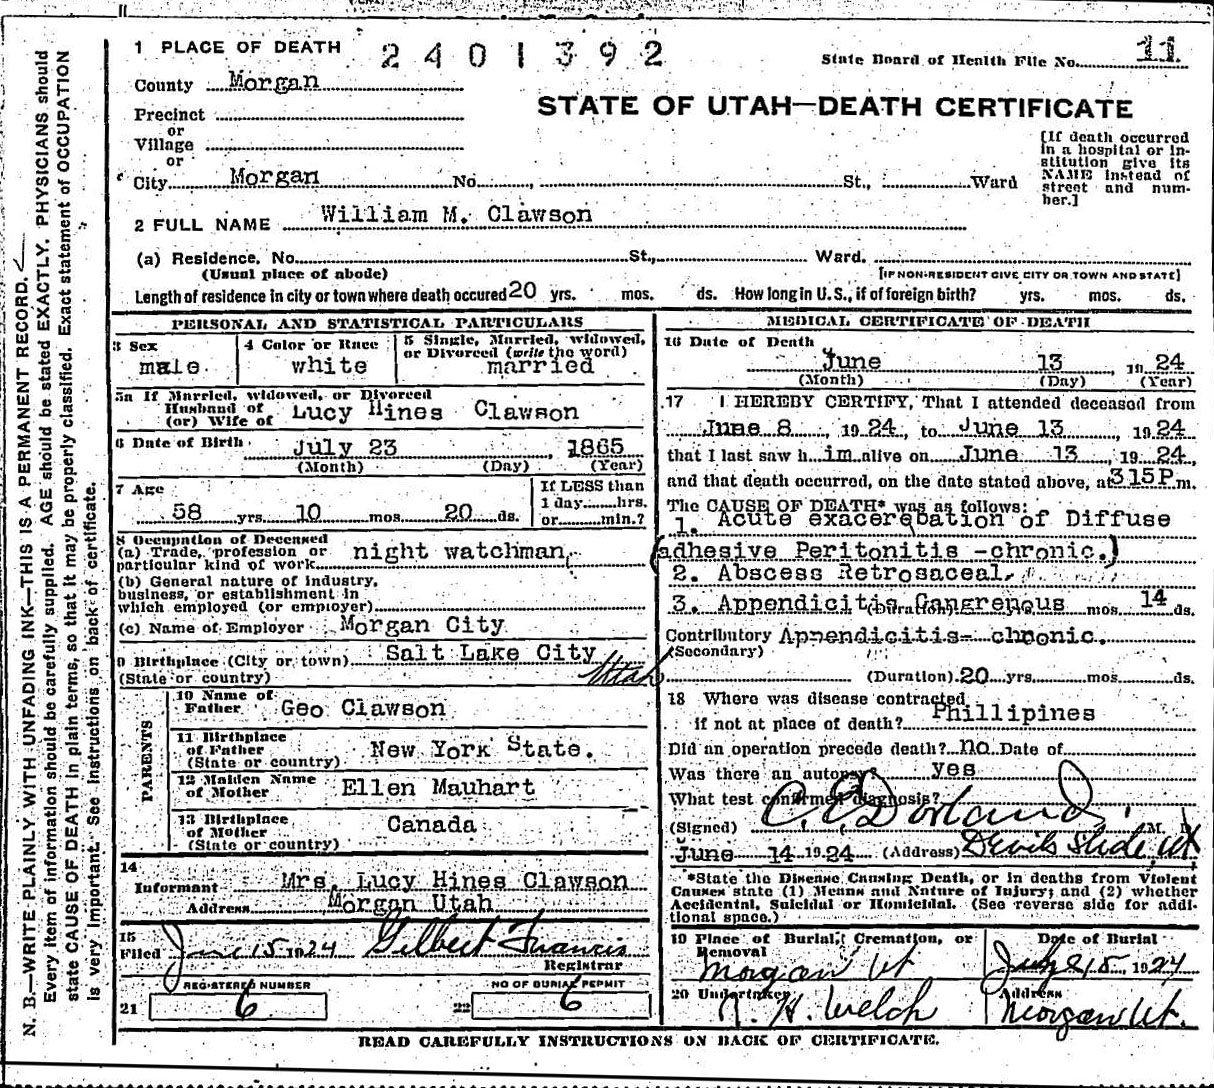 1 PLACE OF DEATH
2 4 0 1 3 9 2
State Board of Health File No. 11
County Morgan
STATE OF UTAH—DEATH CERTIFICATE
Precinct
or
Village
or
City Morgan No. St., Ward
[If death occurred
in a hospital or in-
stitution give its
NAME instead of
street and num-
ber.]
2 FULL NAME William M. Clawson
(a) Residence, No. St., Ward.
(Usual place of abode) [IF NON-RESIDENT GIVE CITY OR TOWN AND STATE]
Length of residence in city or town where death occured 20 yrs. mos. ds. How long in U. S., if of foreign birth? yrs. mos. ds.
PERSONAL AND STATISTICAL PARTICULARS
3 Sex
male
4 Color or Race
white
5 Single, Married, widowed,
or Divorced (write the word)
married
5a If Married, widowed, or Divorced
Husband of
(or) Wife of Lucy Hines Clawson
6 Date of Birth July 23, 1865
(Month) (Day) (Year)
7 Age
58 yrs 10 mos 20 ds.
If LESS than
1 day hrs.
or min.?
8 Occupation of Deceased
(a) Trade, profession or
particular kind of work night watchman,
(b) General nature of industry,
business, or establishment in
which employed (or employer)
(c) Name of Employer Morgan City
9 Birthplace (City or town) Salt Lake City
(State or country) Utah
PARENTS
10 Name of
Father Geo Clawson
11 Birthplace
of Father New York State.
(State or country)
12 Maiden Name
of Mother Ellen Mauhart
13 Birthplace
of Mother Canada
(State or country)
14
Informant Mrs. Lucy Hines Clawson
Address Morgan Utah
15
Filed June 15 1924 Gilbert Francis
Registrar
REGISTERED NUMBER
21 6
NO OF BURIAL PERMIT
22 6
MEDICAL CERTIFICATE OF DEATH
16 Date of Death
June 13, 1924
(Month) (Day) (Year)
17 I HEREBY CERTIFY, That I attended deceased from
June 8, 1924, to June 13, 1924
that I last saw h im alive on June 13, 1924,
and that death occurred, on the date stated above, at 3 15P m.
The CAUSE OF DEATH* was as follows:
1. Acute exacerbation of Diffuse
(adhesive Peritonitis -chronic.)
2. Abscess Retrosaceal.
3. Appendicitis Gangrenous (Duration) mos. 14 ds.
Contributory Appendicitis- chronic.
(Secondary)
(Duration) 20 yrs. mos. ds.
18 Where was disease contracted
if not at place of death? Phillipines
Did an operation precede death? no Date of
Was there an autopsy? yes
What test confirmed diagnosis?
(Signed) C. E. Dorland M. D.
June 14 1924 (Address) Devils Slide, Ut
*State the Disease Causing Death, or in deaths from Violent
Causes state (1) Means and Nature of Injury; and (2) whether
Accidental, Suicidal or Homicidal. (See reverse side for addi-
tional space.)
19 Place of Burial, Cremation, or
Removal
Morgan Ut
Date of Burial
June 15, 1924
20 Undertaker
R. H. Welch
Address
Morgan Ut.
READ CAREFULLY INSTRUCTIONS ON BACK OF CERTIFICATE.
N. B.—WRITE PLAINLY WITH UNFADING INK—THIS IS A PERMANENT RECORD.
Every item of information should be carefully supplied. AGE should be stated EXACTLY. PHYSICIANS should
state CAUSE OF DEATH in plain terms, so that it may be properly classified. Exact statement of OCCUPATION
is very important. See instructions on back of certificate.